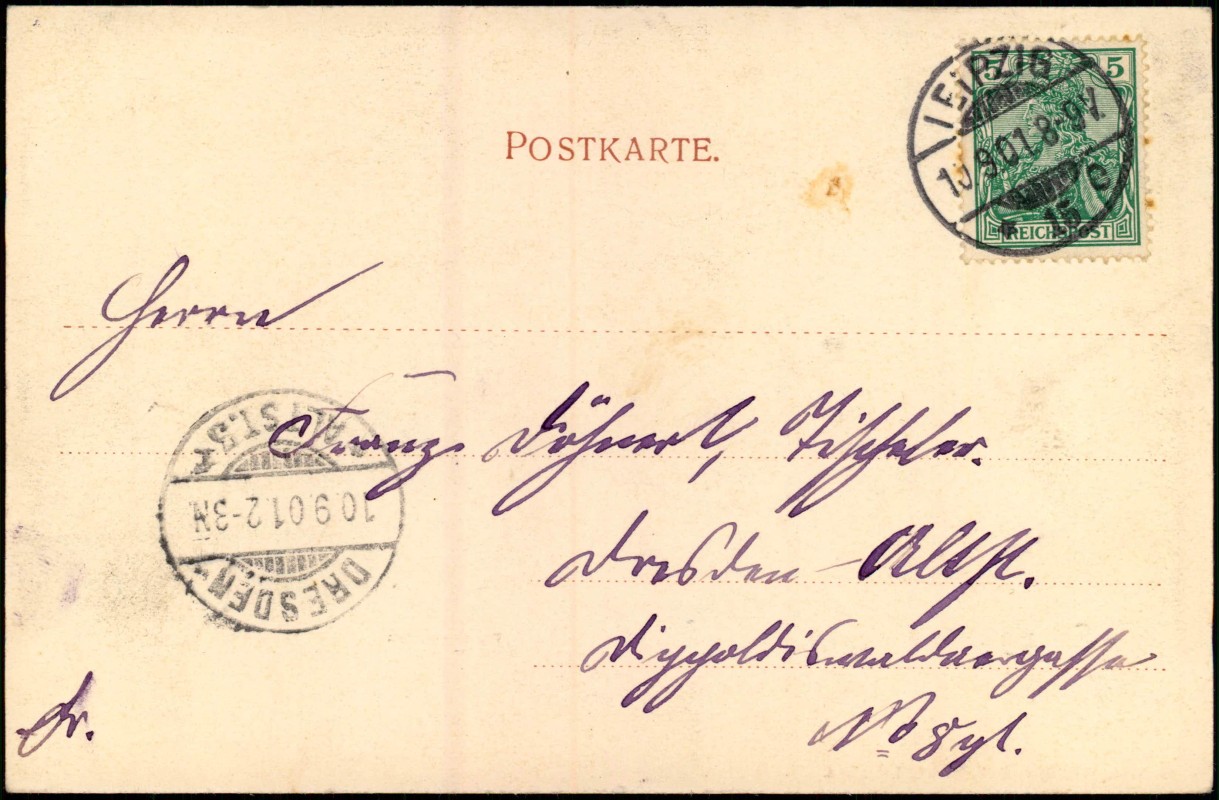 POSTKARTE.
5 5
REICHSPOST
LEIPZIG
10 9.01. 8-9V.
* 13 c
Herrn
Franz Döhnert, Tischler.
Dresden-Altst.
Dippoldiswaldaergasse
No 8
Fr.
DRESDEN-
10.9.01.2-3N.
ALTST.